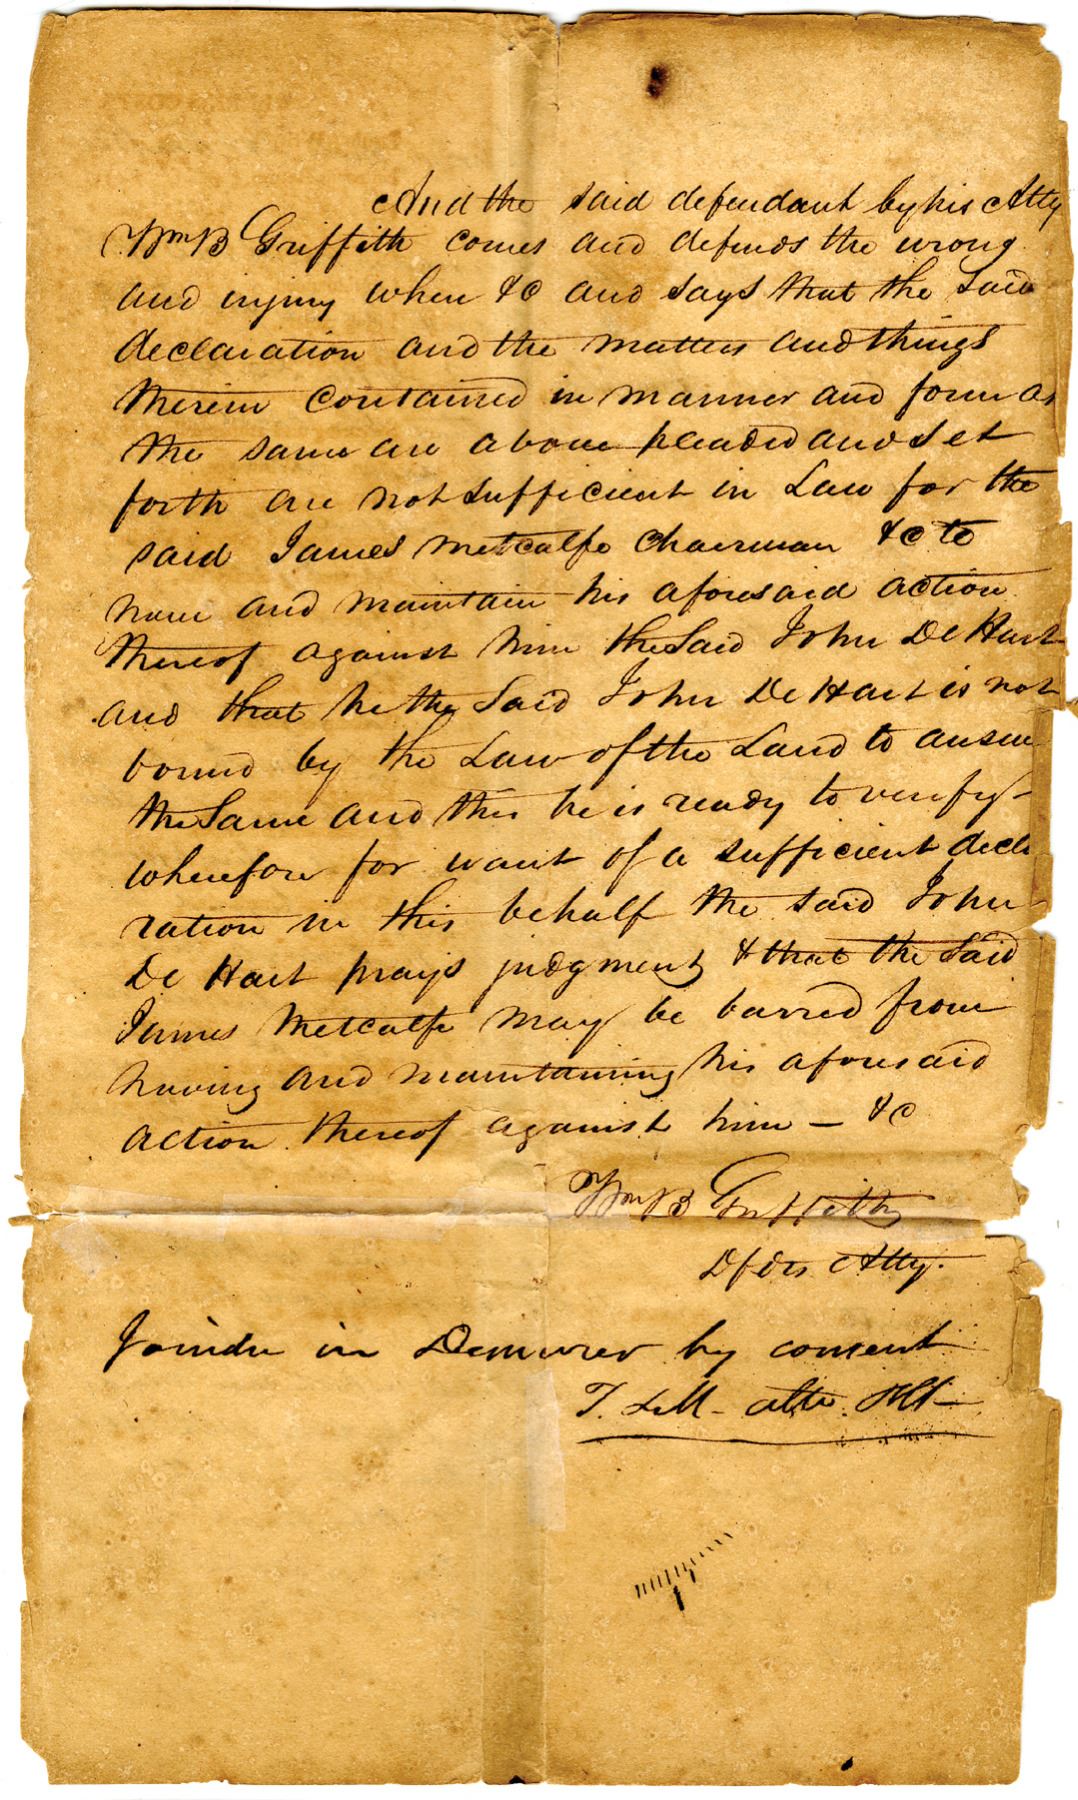 And the said defendant by his Atty
Wm B Griffith comes and defends the wrong
and injury when &c and says that the said
declaration and the matters and things
therein contained in manner and form as
the same are above pleaded and set
forth are not sufficient in Law for the
said James Metcalfe Chairman &c to
have and maintain his aforesaid action
thereof against him the Said John De Hart
and that he the Said John De Hart is not
bound by the Law of the Land to answer
the Same and this he is ready to verify-
wherefore for want of a sufficient decla
ration in this behalf the said John
De Hart prays judgment & that the Said
James Metcalfe may be barred from
having and maintaining his aforesaid
action thereof against him - &c
Wm B Griffith
Dfdts Atty.
Joinder in Demurrer by consent
T.